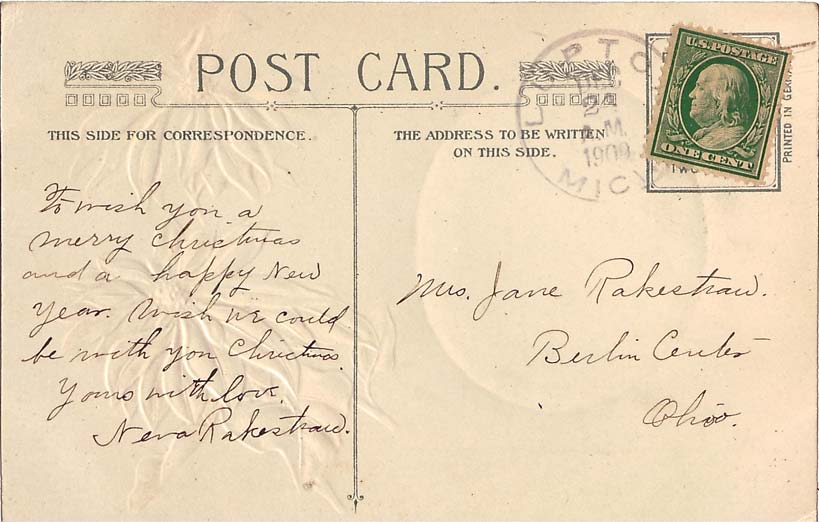 POST CARD.
THIS SIDE FOR CORRESPONDENCE.
THE ADDRESS TO BE WRITTEN
ON THIS SIDE.
LUPTON
DEC
A.M.
1909
MICH
U.S. POSTAGE
ONE CENT
TWO
PRINTED IN GERMA
To wish you a
merry Christmas
and a happy New
Year. Wish we could
be with you Christmas.
Yours with love,
Neva Rakestraw.
Mrs. Jane Rakestraw.
Berlin Center
Ohio.